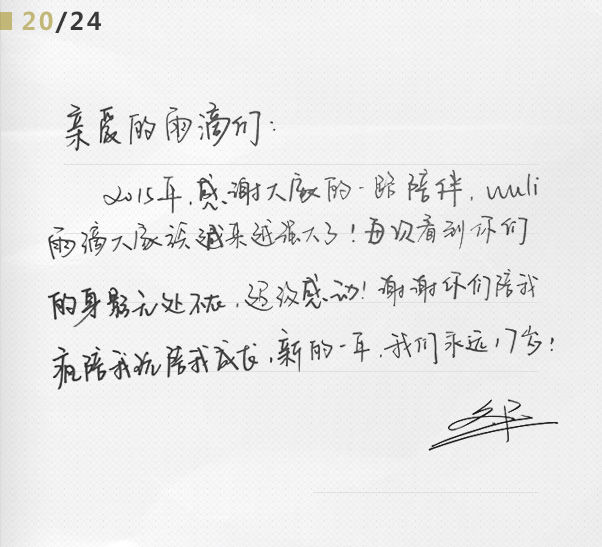 20/24
亲爱的雨滴们：
2015年，感谢大家的一路陪伴，wuli
雨滴大家族越来越强大了！每次看到你们
的身影无处不在，超级感动！谢谢你们陪我
疯陪我玩陪我成长，新的一年，我们永远17岁！